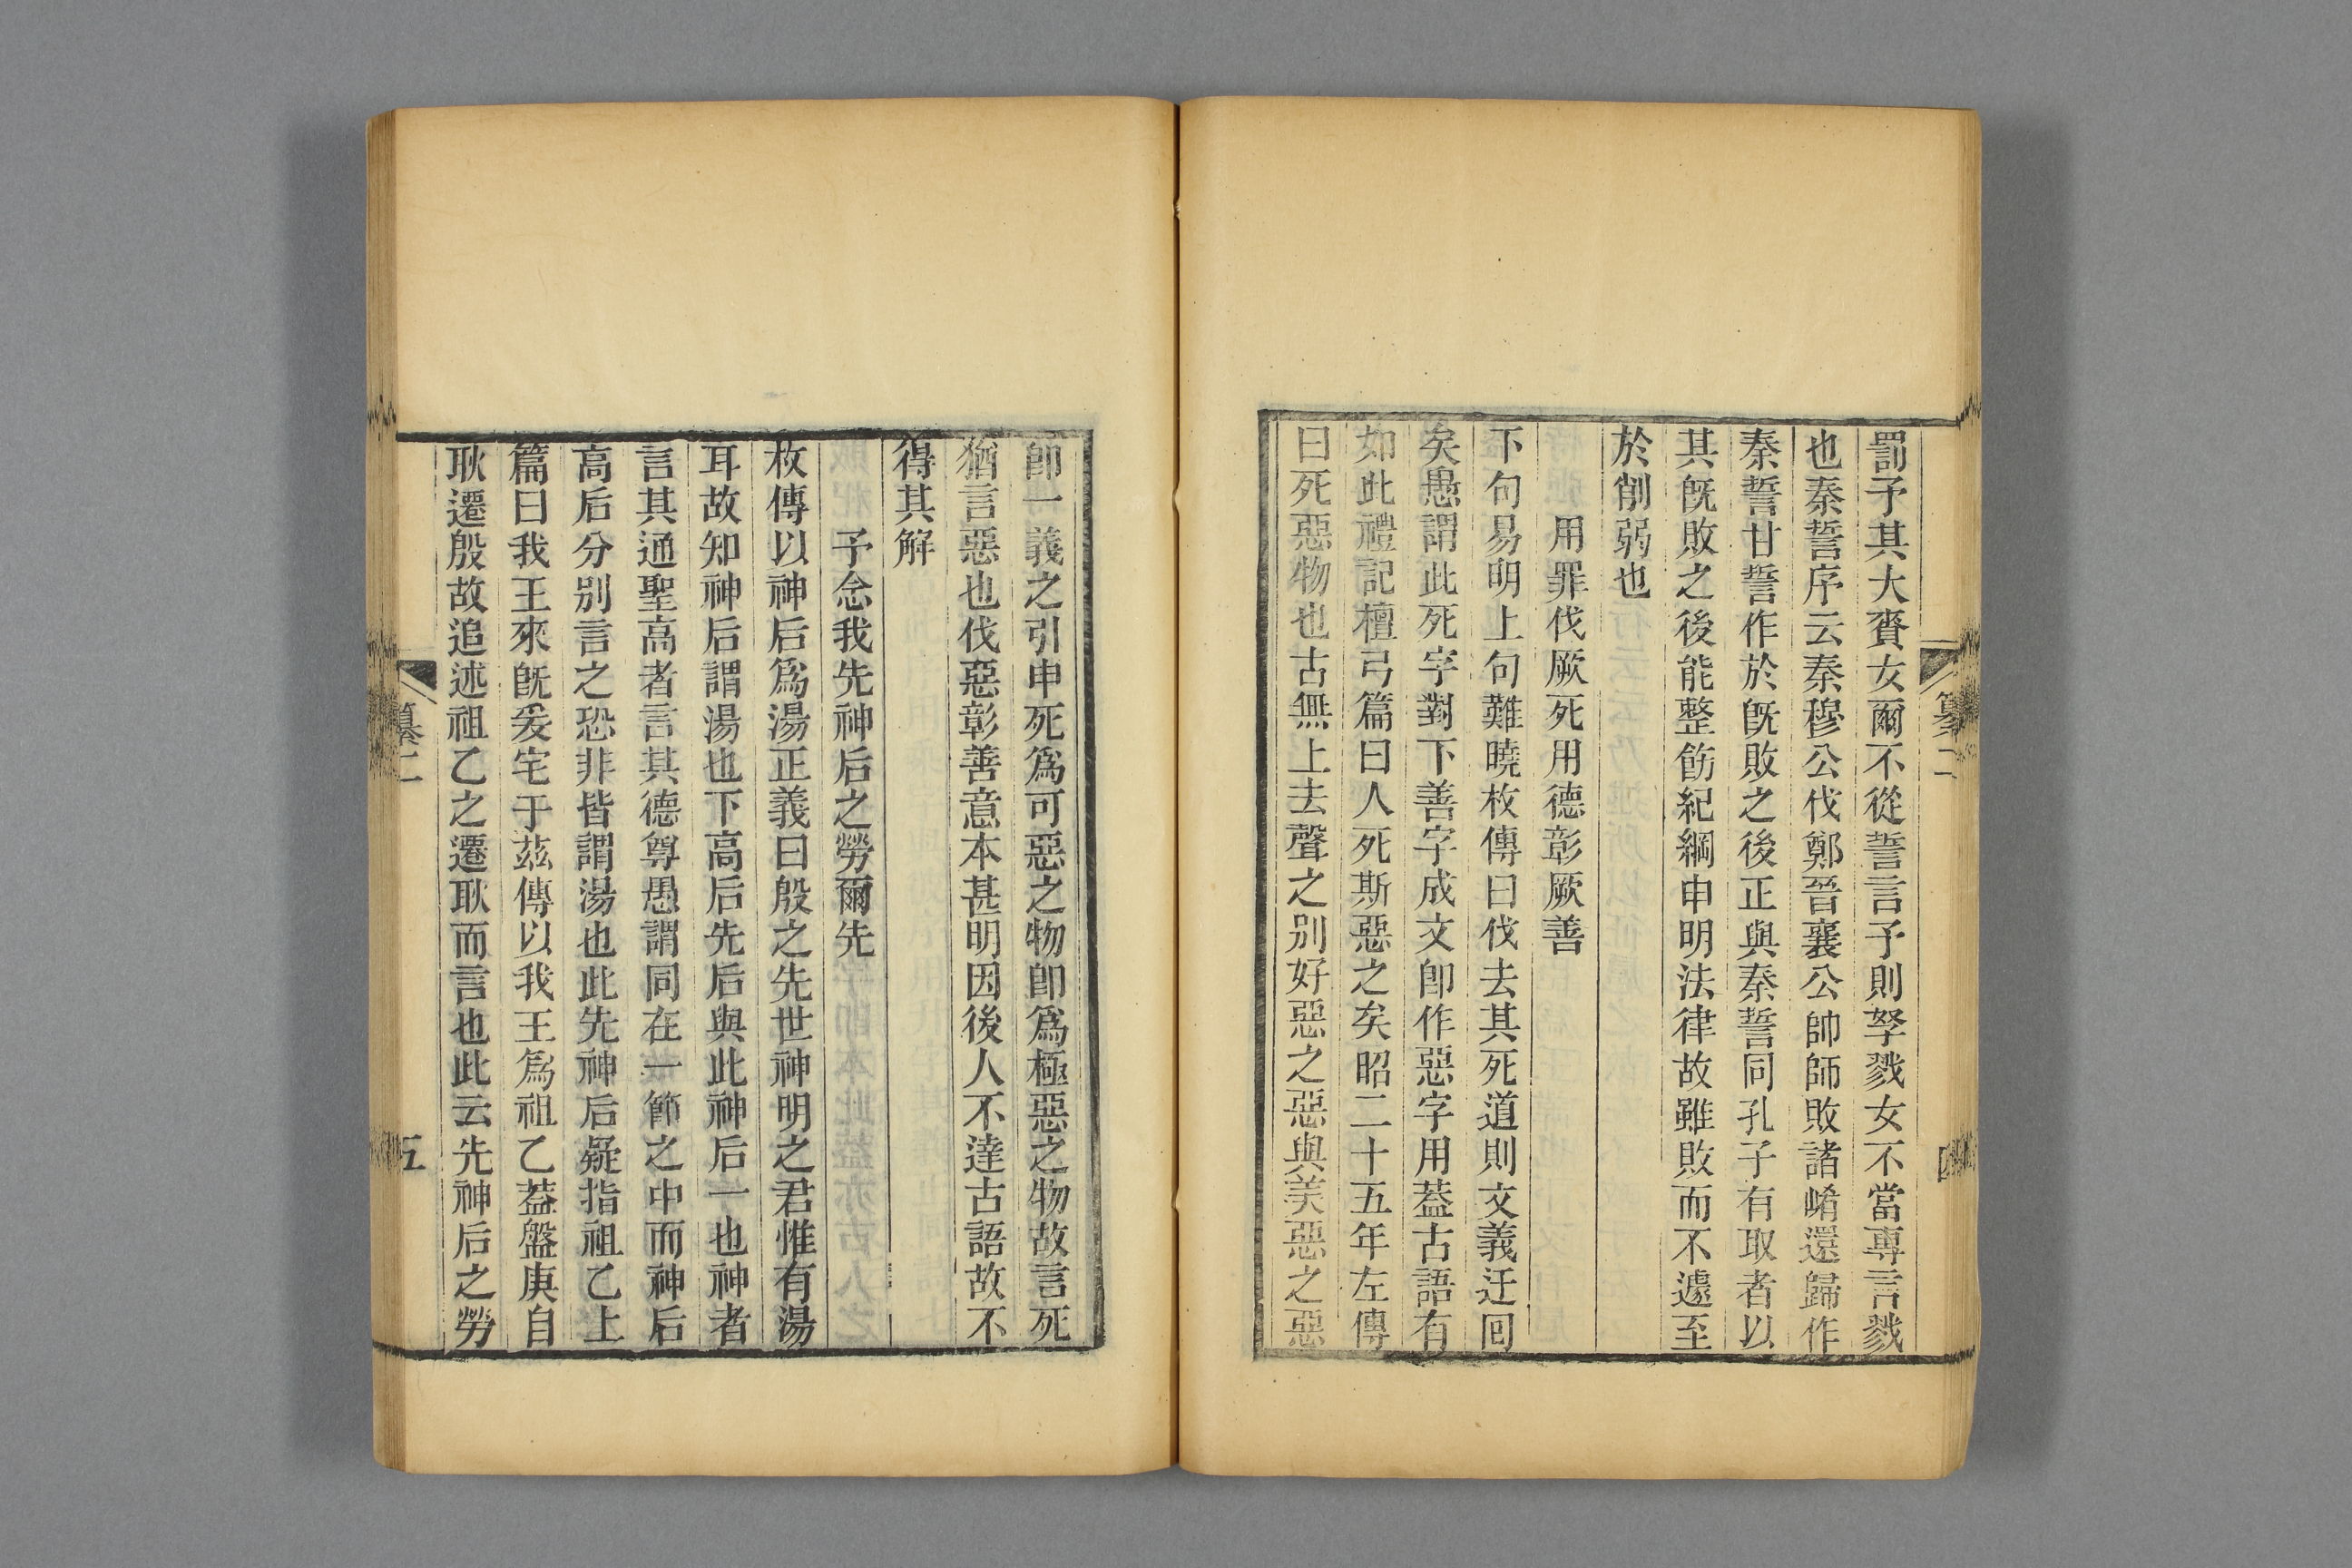 罰予其大賚女爾不從誓言予則孥戮女不當專言戮
也秦誓序云秦穆公伐鄭晉襄公帥師敗諸崤還歸作
秦誓甘誓作於旣敗之後正與秦誓同孔子有取者以
其旣敗之後能整飭紀綱申明法律故雖敗而不遽至
於削弱也
用罪伐厥死用德彰厥善
下句易明上句難曉枚傳曰伐去其死道則文義迂回
矣愚謂此死字對下善字成文卽作惡字用葢古語有
如此禮記檀弓篇曰人死斯惡之矣昭二十五年左傳
曰死惡物也古無上去聲之別好惡之惡與美惡之惡
纂二
四
卽一義之引申死爲可惡之物卽爲極惡之物故言死
猶言惡也伐惡彰善意本甚明因後人不達古語故不
得其解
予念我先神后之勞爾先
枚傳以神后爲湯正義曰殷之先世神明之君惟有湯
耳故知神后謂湯也下高后先后與此神后一也神者
言其通聖高者言其德尊愚謂同在一節之中而神后
高后分別言之恐非皆謂湯也此先神后疑指祖乙上
篇曰我王來旣爰宅于茲傳以我王爲祖乙葢盤庚自
耿遷殷故追述祖乙之遷耿而言也此云先神后之勞
纂二
五